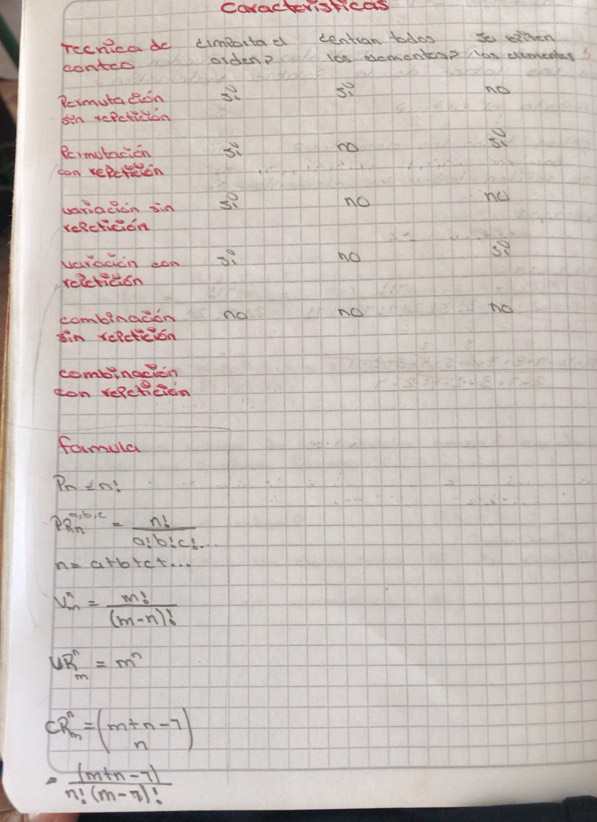 Características
Tecnica de conteo ¿importa el orden? ¿entran todos los elementos? Se repiten los elementos?
Permutación sin repetición sí sí no
Permutación con repetición sí no sí
variación sin repetición sí no no
variación con repetición sí no sí
combinación sin repetición no no no
combinación con repetición
formula
Pn = n!
PR_n^{a,b,c} = n! / a!b!c!...
n = a+b+c+...
V_m^n = m! / (m-n)!
VR_m^n = m^n
CR_m^n = (m+n-1 / n)
= (m+n-1) / n!(m-1)!